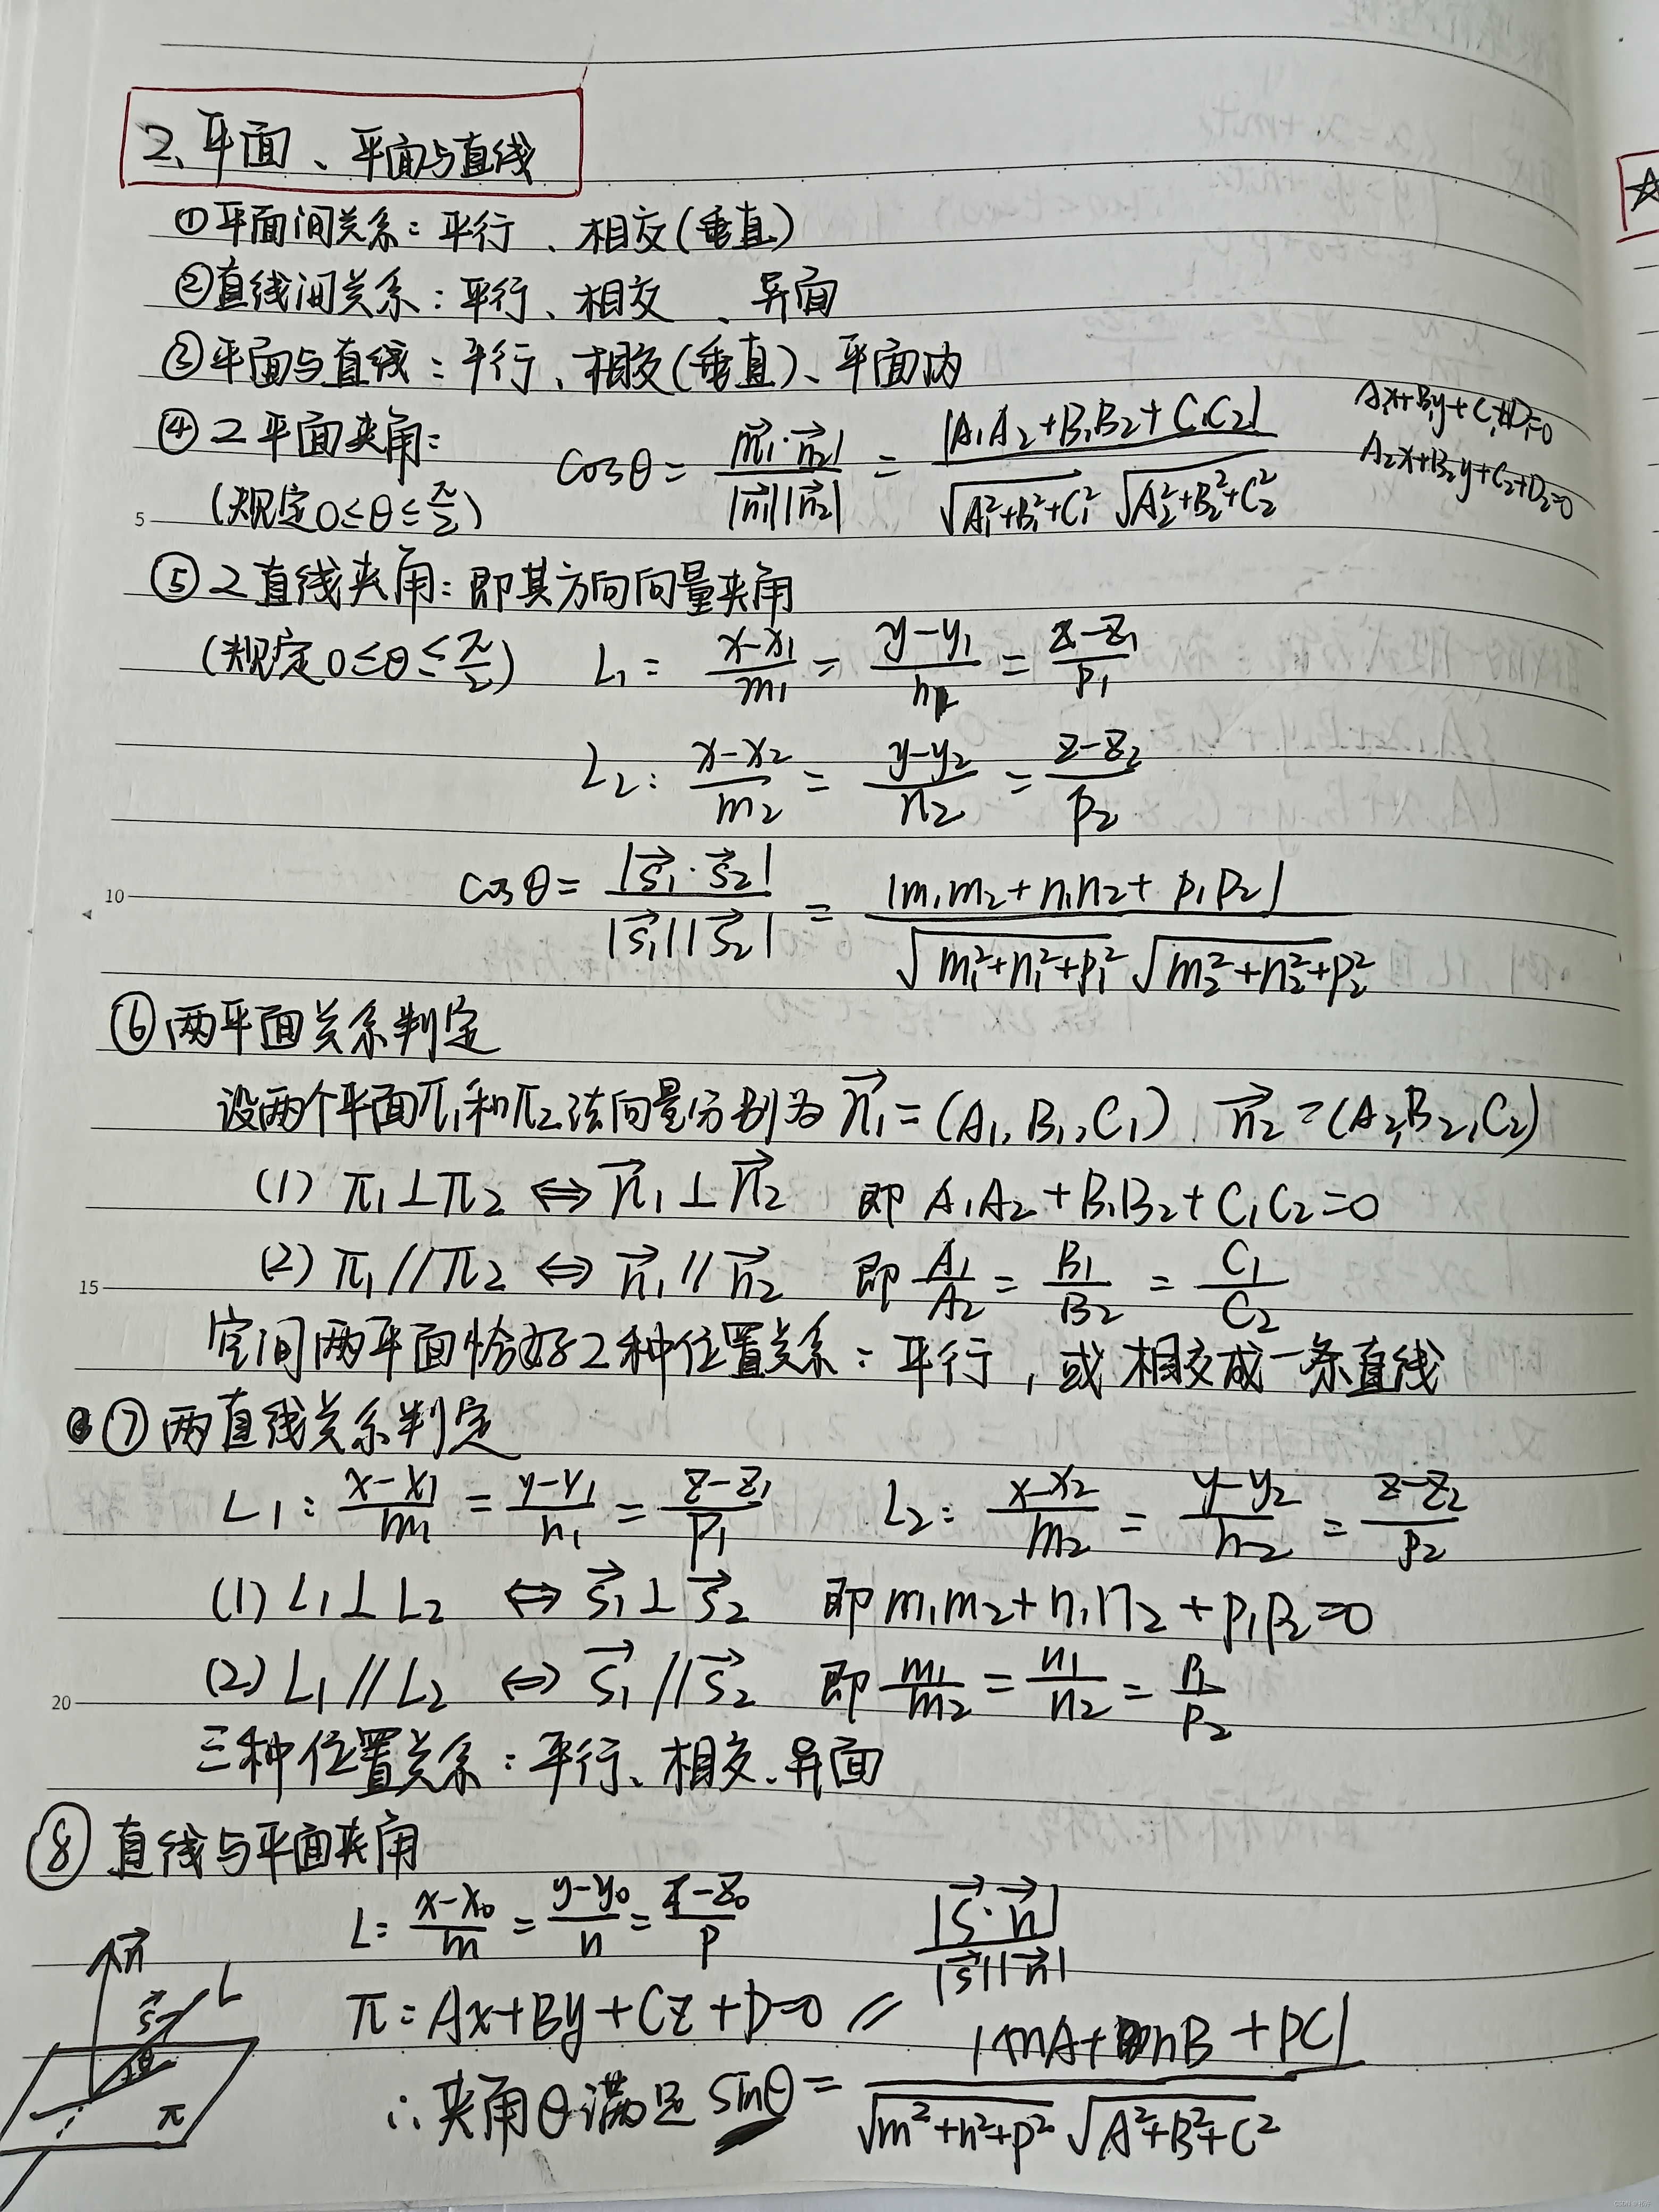 2、平面、平面与直线
①平面间关系：平行、相交(垂直)
②直线间关系：平行、相交、异面
③平面与直线：平行、相交(垂直)、平面内
④2平面夹角：cosθ = |n⃗₁·n⃗₂| / |n⃗₁||n⃗₂| = |A₁A₂+B₁B₂+C₁C₂| / √(A₁²+B₁²+C₁²) √(A₂²+B₂²+C₂²)
A₁x+B₁y+C₁+D₁=0
A₂x+B₂y+C₂+D₂=0
(规定0≤θ≤π/2)
5
⑤2直线夹角：即其方向向量夹角
(规定0≤θ≤π/2) L₁ = (x-x₁)/m₁ = (y-y₁)/n₁ = (z-z₁)/p₁
L₂: (x-x₂)/m₂ = (y-y₂)/n₂ = (z-z₂)/p₂
10
cosθ = |s⃗₁·s⃗₂| / |s⃗₁||s⃗₂| = |m₁m₂+n₁n₂+p₁p₂| / √(m₁²+n₁²+p₁²) √(m₂²+n₂²+p₂²)
⑥两平面关系判定
设两个平面π₁和π₂法向量分别为 n⃗₁=(A₁,B₁,C₁) n⃗₂=(A₂,B₂,C₂)
(1) π₁⊥π₂ ⇔ n⃗₁⊥n⃗₂ 即 A₁A₂+B₁B₂+C₁C₂=0
(2) π₁//π₂ ⇔ n⃗₁//n⃗₂ 即 A₁/A₂ = B₁/B₂ = C₁/C₂
15
空间两平面恰好2种位置关系：平行，或相交成一条直线
⑦两直线关系判定
L₁: (x-x₁)/m₁ = (y-y₁)/n₁ = (z-z₁)/p₁ L₂: (x-x₂)/m₂ = (y-y₂)/n₂ = (z-z₂)/p₂
(1) L₁⊥L₂ ⇔ s⃗₁⊥s⃗₂ 即 m₁m₂+n₁n₂+p₁p₂=0
(2) L₁//L₂ ⇔ s⃗₁//s⃗₂ 即 m₁/m₂ = n₁/n₂ = p₁/p₂
20
三种位置关系：平行、相交、异面
⑧直线与平面夹角
L: (x-x₀)/m = (y-y₀)/n = (z-z₀)/p
|s⃗·n⃗| / |s⃗||n⃗|
π: Ax+By+Cz+D=0 =
∴夹角θ满足 sinθ = |mA+nB+pC| / √(m²+n²+p²) √(A²+B²+C²)
n⃗
s⃗
L
θ
π